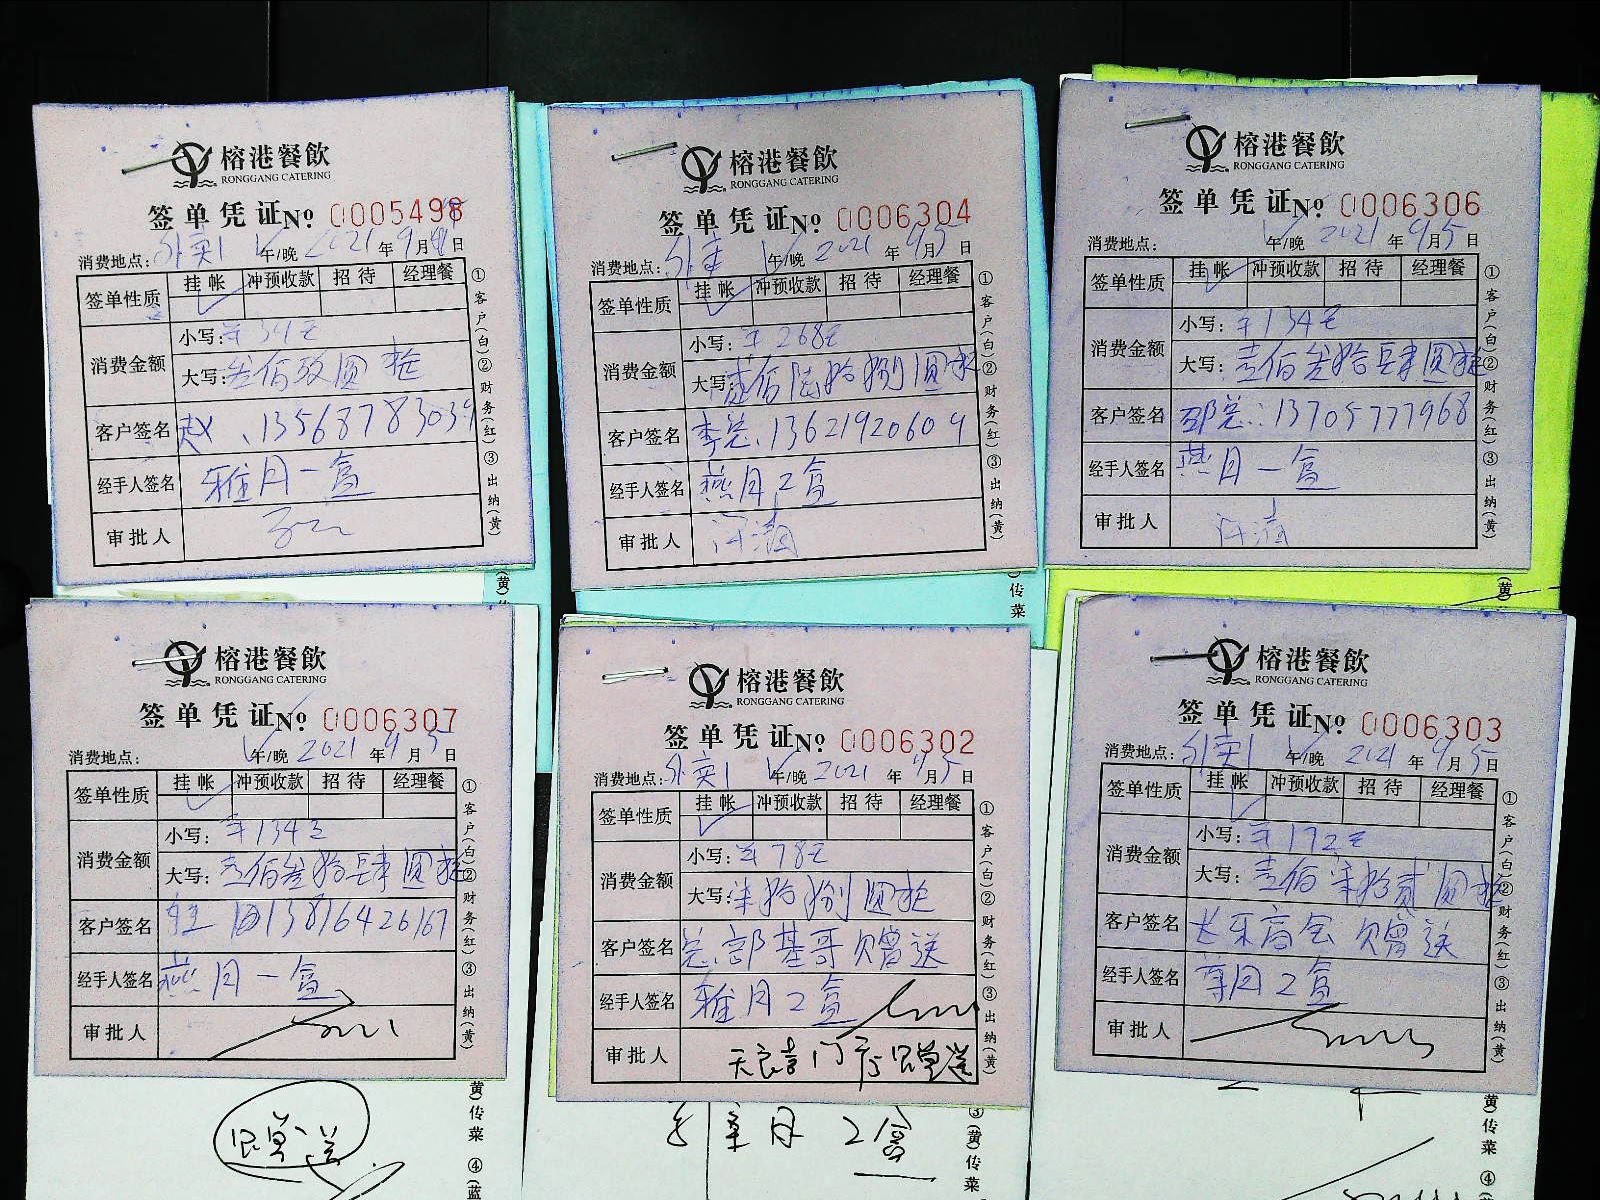 榕港餐飲
RONGGANG CATERING
签单凭证No 0005498
消费地点：外卖1 午/晚 2021年9月 日
签单性质 挂帐 冲预收款 招待 经理餐
消费金额 小写：¥39元
大写：
客户签名 赵、13568778303
经手人签名 雅月一盒
审批人
①客户(白)②财务(红)③出纳(黄)
榕港餐飲
RONGGANG CATERING
签单凭证No 0006304
消费地点：外卖 午/晚 2021年9月5日
签单性质 挂帐 冲预收款 招待 经理餐
消费金额 小写：¥268元
大写：贰佰陆拾捌圆整
客户签名 李总、13621920609
经手人签名 燕月2盒
审批人
①客户(白)②财务(红)③出纳(黄)
榕港餐飲
RONGGANG CATERING
签单凭证No 0006306
消费地点： 午/晚 2021年9月5日
签单性质 挂帐 冲预收款 招待 经理餐
消费金额 小写：¥134元
大写：壹佰叁拾肆圆整
客户签名 邵总：13705777968
经手人签名 燕月一盒
审批人
①客户(白)②财务(红)③出纳(黄)
(黄)传菜
(黄)
榕港餐飲
RONGGANG CATERING
签单凭证No 0006307
消费地点： 午/晚 2021年9月5日
签单性质 挂帐 冲预收款 招待 经理餐
消费金额 小写：¥134元
大写：壹佰叁拾肆圆整
客户签名 13816426167
经手人签名 燕月一盒
审批人
①客户(白)②财务(红)③出纳(黄)
榕港餐飲
RONGGANG CATERING
签单凭证No 0006302
消费地点：外卖1 午/晚 2021年9月5日
签单性质 挂帐 冲预收款 招待 经理餐
消费金额 小写：¥78元
大写：柒拾捌圆整
客户签名 总部基哥赠送
经手人签名 雅月2盒
审批人 天良喜门店赠送
①客户(白)②财务(红)③出纳(黄)
榕港餐飲
RONGGANG CATERING
签单凭证No 0006303
消费地点：外卖1 午/晚 2021年9月5日
签单性质 挂帐 冲预收款 招待 经理餐
消费金额 小写：¥172元
大写：壹佰柒拾贰圆整
客户签名 长乐商会赠送
经手人签名 尊月2盒
审批人
①客户(白)②财务(红)③出纳(黄)
赠送
黄)传菜 ④(蓝
月2盒
③(黄)传菜
黄)传菜 ④